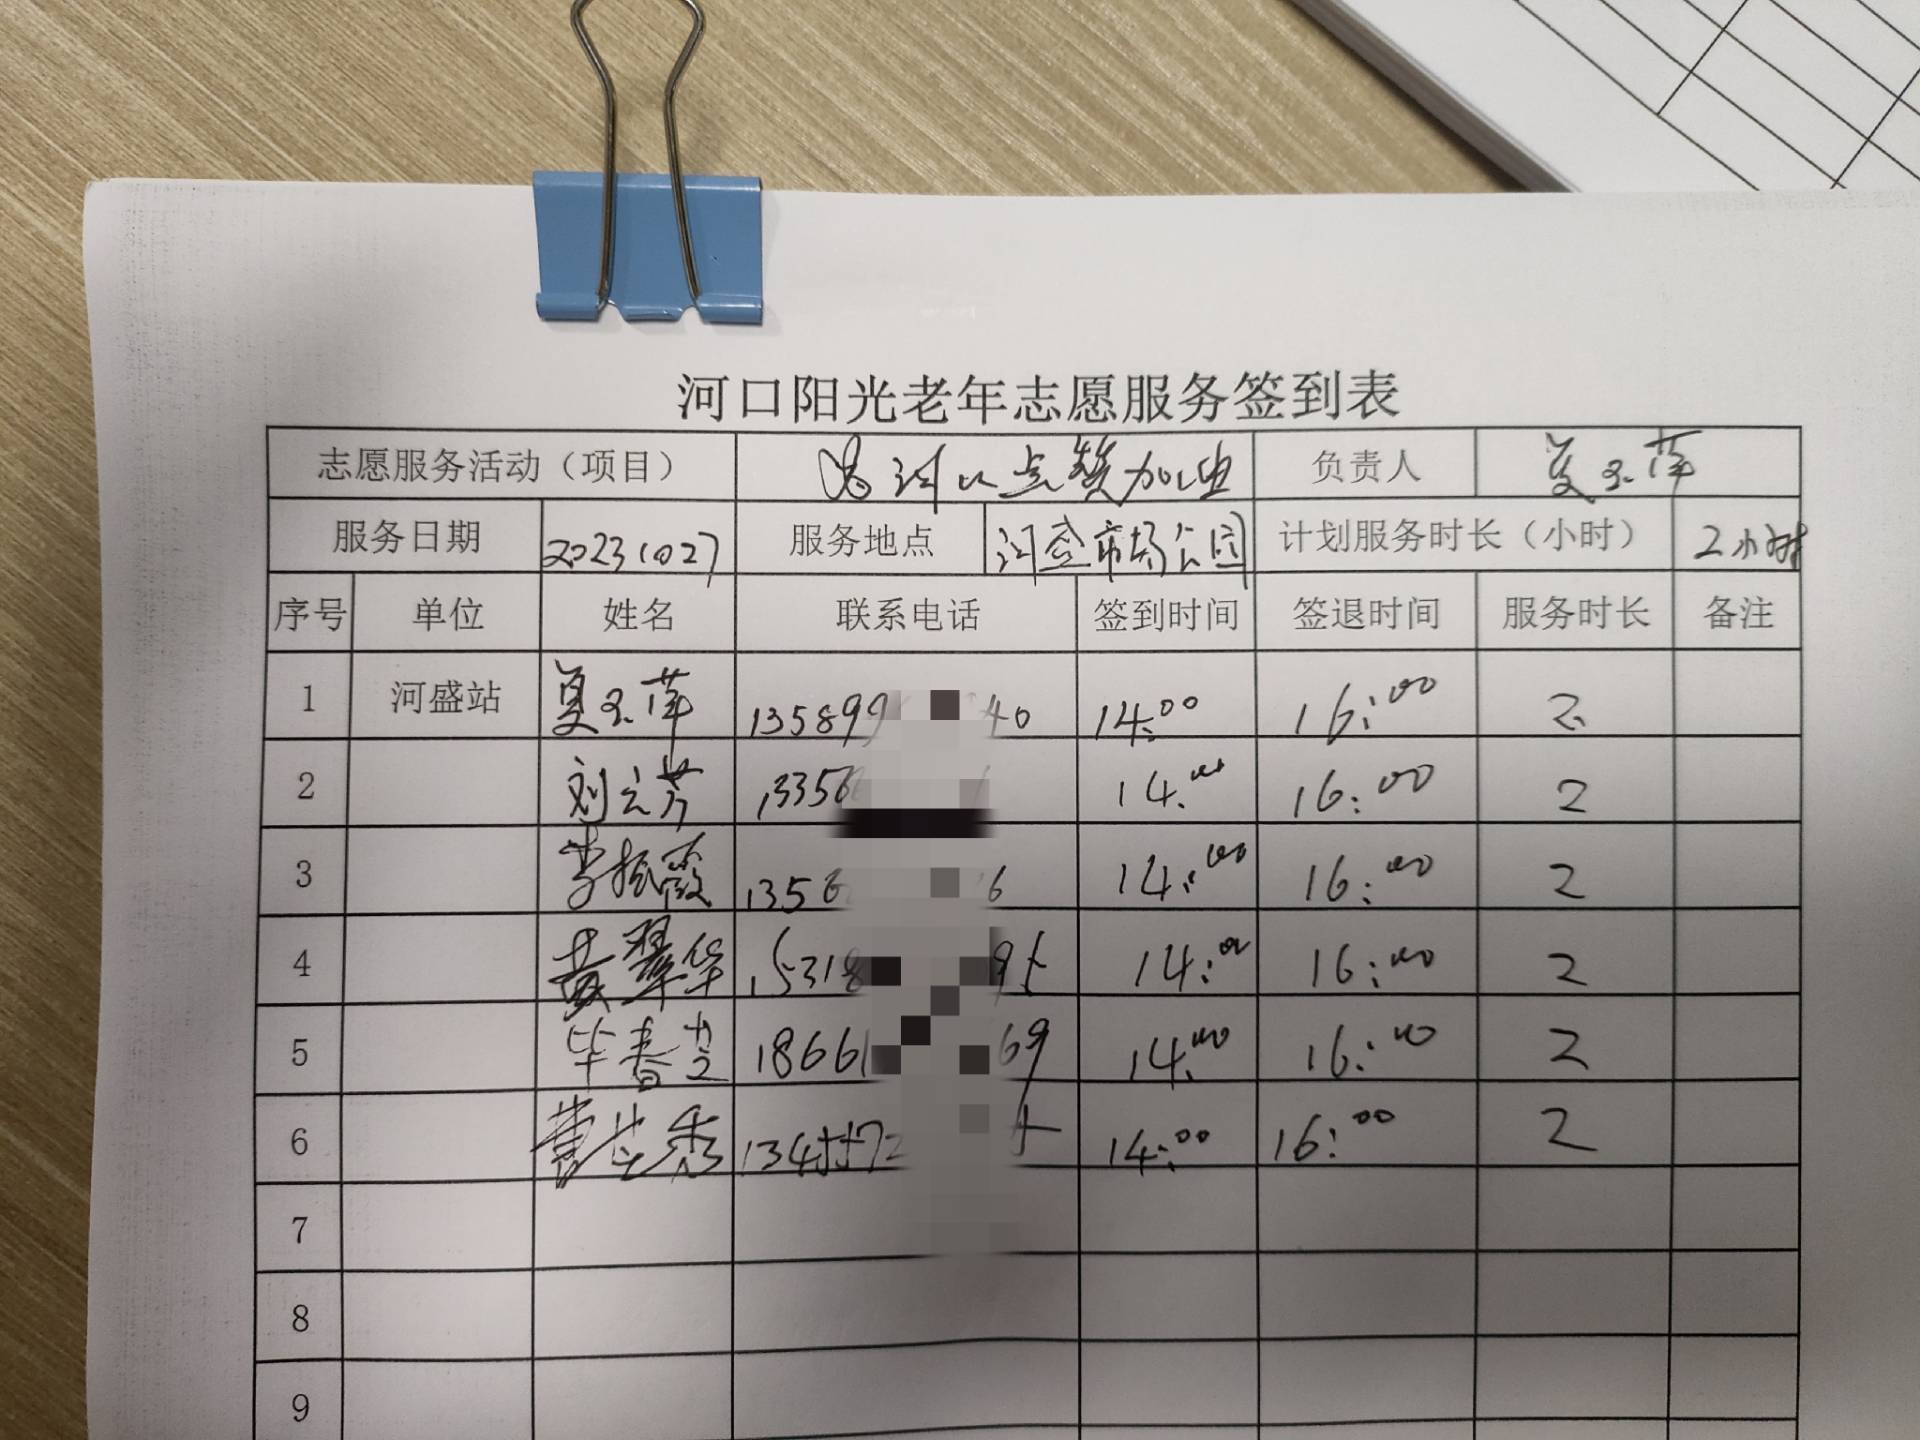 河口阳光老年志愿服务签到表
志愿服务活动（项目） 为河口点赞加油 负责人 夏玉萍
服务日期 20231027 服务地点 河盛市场公园 计划服务时长（小时） 2小时
序号 单位 姓名 联系电话 签到时间 签退时间 服务时长 备注
1 河盛站 夏玉萍 135899 40 14:00 16:00 2
2 刘云芳 1335 14:00 16:00 2
3 李振霞 1356 6 14:00 16:00 2
4 黄翠华 15318 95 14:00 16:00 2
5 毕春 18661 69 14:00 16:00 2
6 秀 134 72 14:00 16:00 2
7
8
9